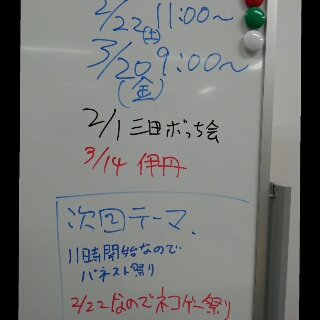 2/22(土)11:00～
3/20 9:00～
(金)
2/1 三田ボっち会
3/14 伊丹
次回テーマ、
11時開始なので
バネスト祭り
2/22なのでネコゲー祭り